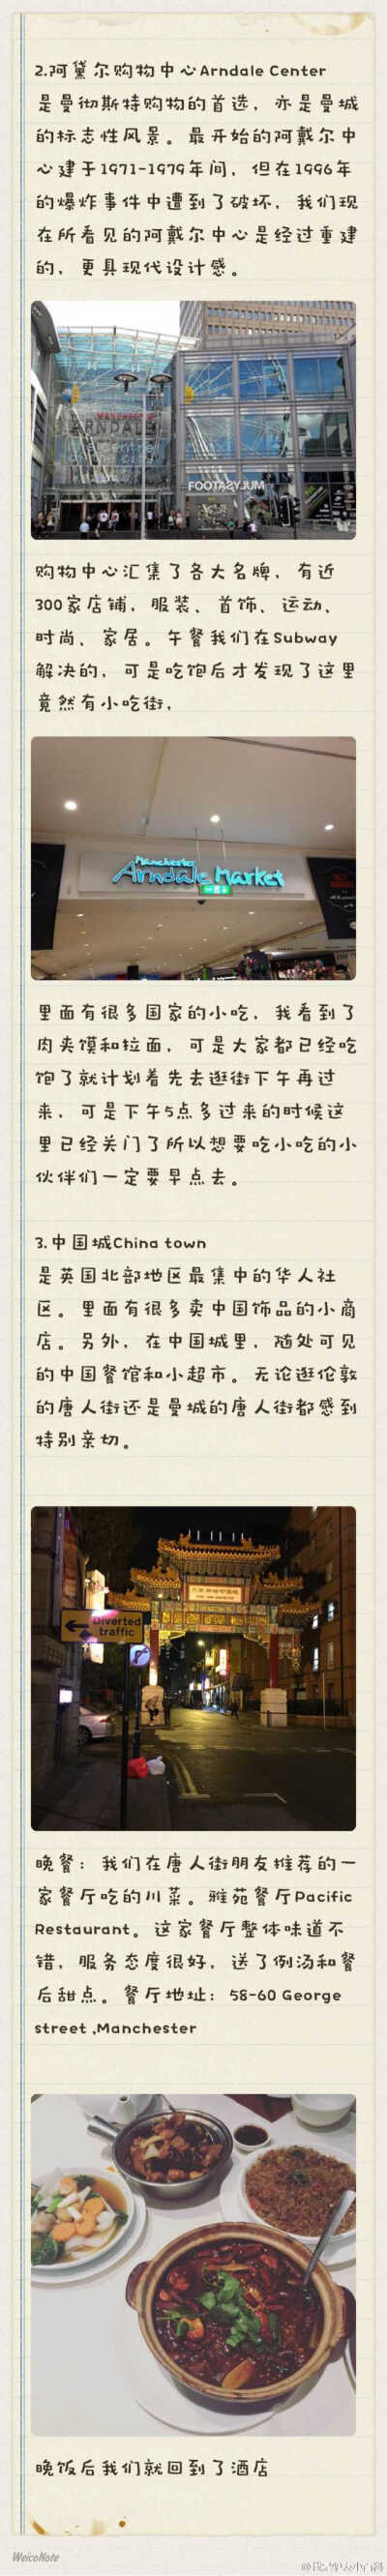 2.阿黛尔购物中心Arndale Center
是曼彻斯特购物的首选，亦是曼城
的标志性风景。最开始的阿戴尔中
心建于1971-1979年间，但在1996年
的爆炸事件中遭到了破坏，我们现
在所看见的阿戴尔中心是经过重建
的，更具现代设计感。
MANCHESTER
ARNDALE
FOOTASYLUM
购物中心汇集了各大名牌，有近
300家店铺，服装、首饰、运动、
时尚、家居。午餐我们在Subway
解决的，可是吃饱后才发现了这里
竟然有小吃街，
Manchester
Arndale Market
里面有很多国家的小吃，我看到了
肉夹馍和拉面，可是大家都已经吃
饱了就计划着先去逛街下午再过
来，可是下午5点多过来的时候这
里已经关门了所以想要吃小吃的小
伙伴们一定要早点去。
3.中国城China town
是英国北部地区最集中的华人社
区。里面有很多卖中国饰品的小商
店。另外，在中国城里，随处可见
的中国餐馆和小超市。无论逛伦敦
的唐人街还是曼城的唐人街都感到
特别亲切。
Diverted
traffic
晚餐：我们在唐人街朋友推荐的一
家餐厅吃的川菜。雅苑餐厅Pacific
Restaurant。这家餐厅整体味道不
错，服务态度很好，送了例汤和餐
后甜点。餐厅地址：58-60 George
street ,Manchester
晚饭后我们就回到了酒店
WeicoNote